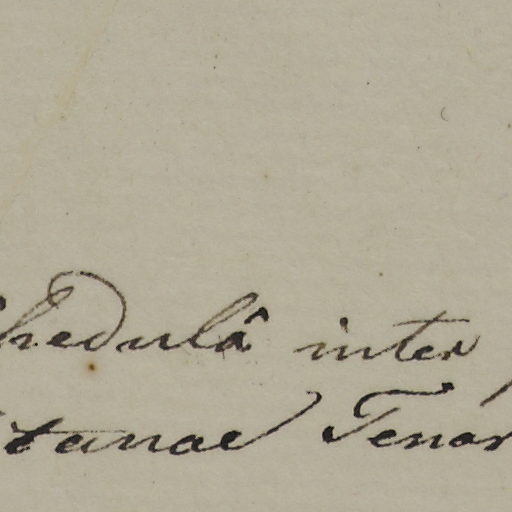 hedulâ inter
tanae Tenor